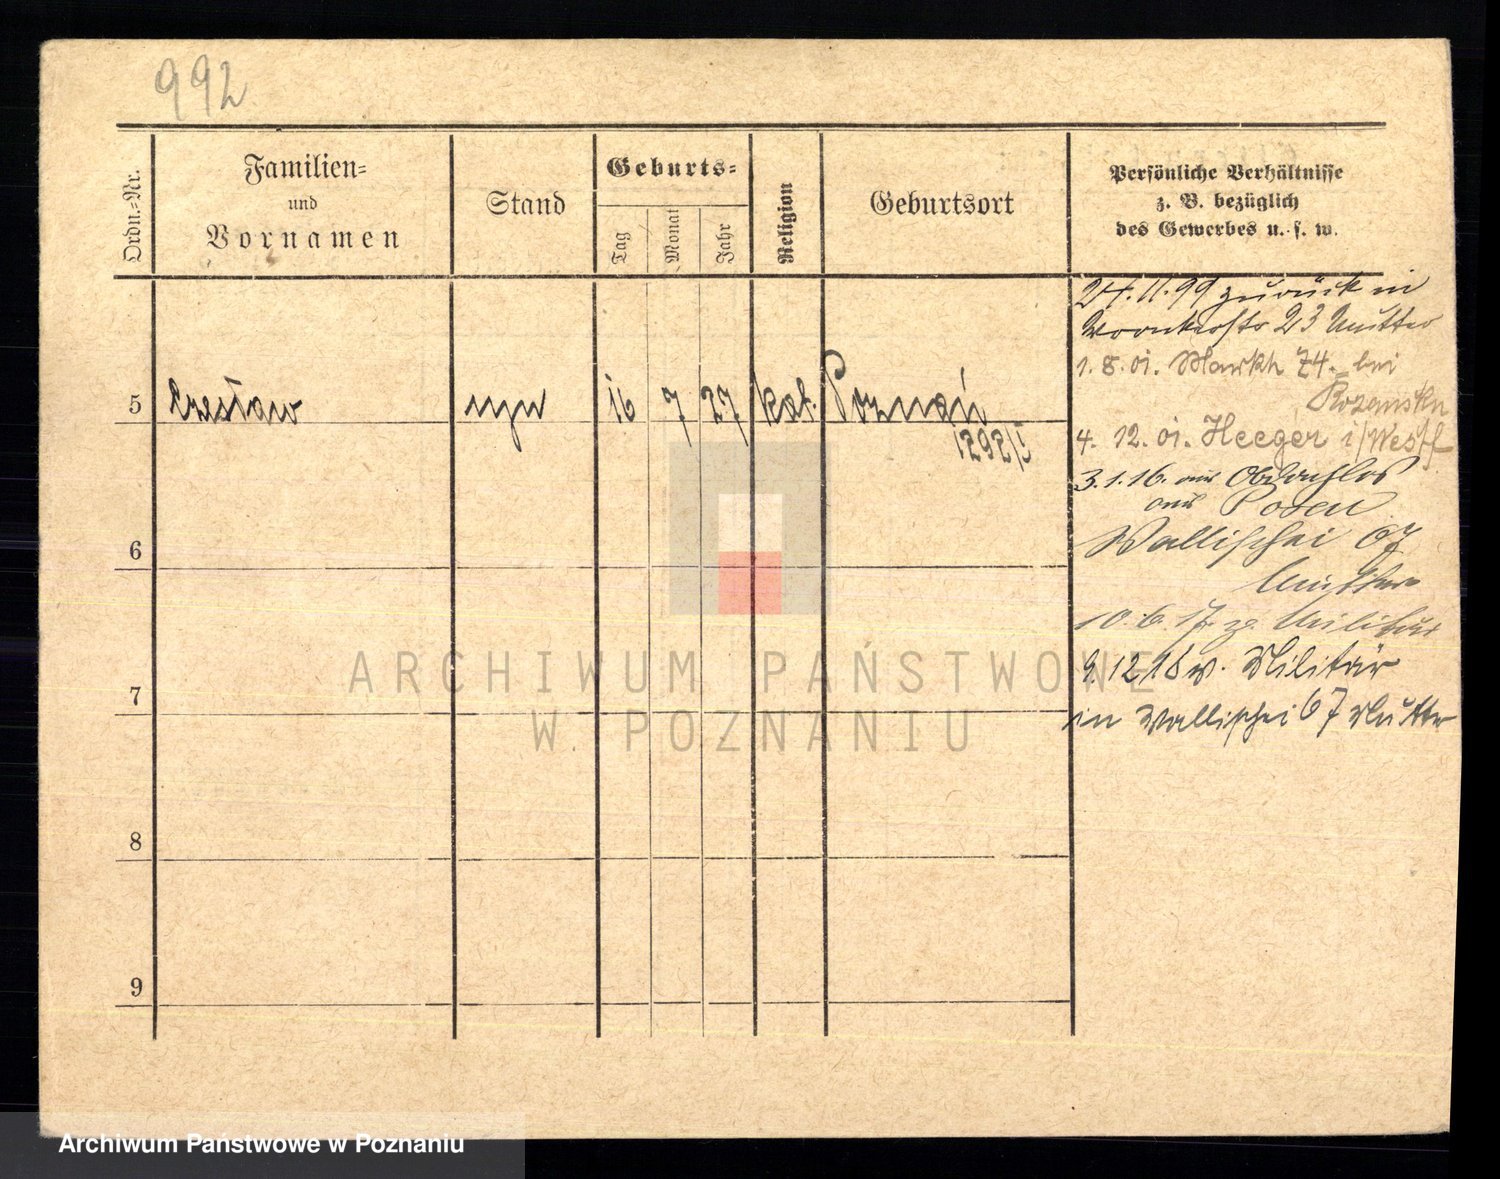 992
Ordn.-Nr.
Familien-
und
Vornamen
Stand
Geburts-
Tag
Monat
Jahr
Religion
Geburtsort
Persönliche Verhältnisse
z. B. bezüglich
des Gewerbes u. s. w.
5 Czesław syn 16 7 27 kat. Poznań
6
7
8
9
24.11.99 zurück in
23 Mutter
1.8.01. Markt 74. bei
4. 12. 01. Heeger i/Westf
3.1.16. aus Obdachlos
aus Posen
Wallischei 67
Mutter
10.6.17. z. Militär
9.12 18 v. Militär
in Wallischei 67 Mutter
ARCHIWUM PAŃSTWOWE
W POZNANIU
Archiwum Państwowe w Poznaniu